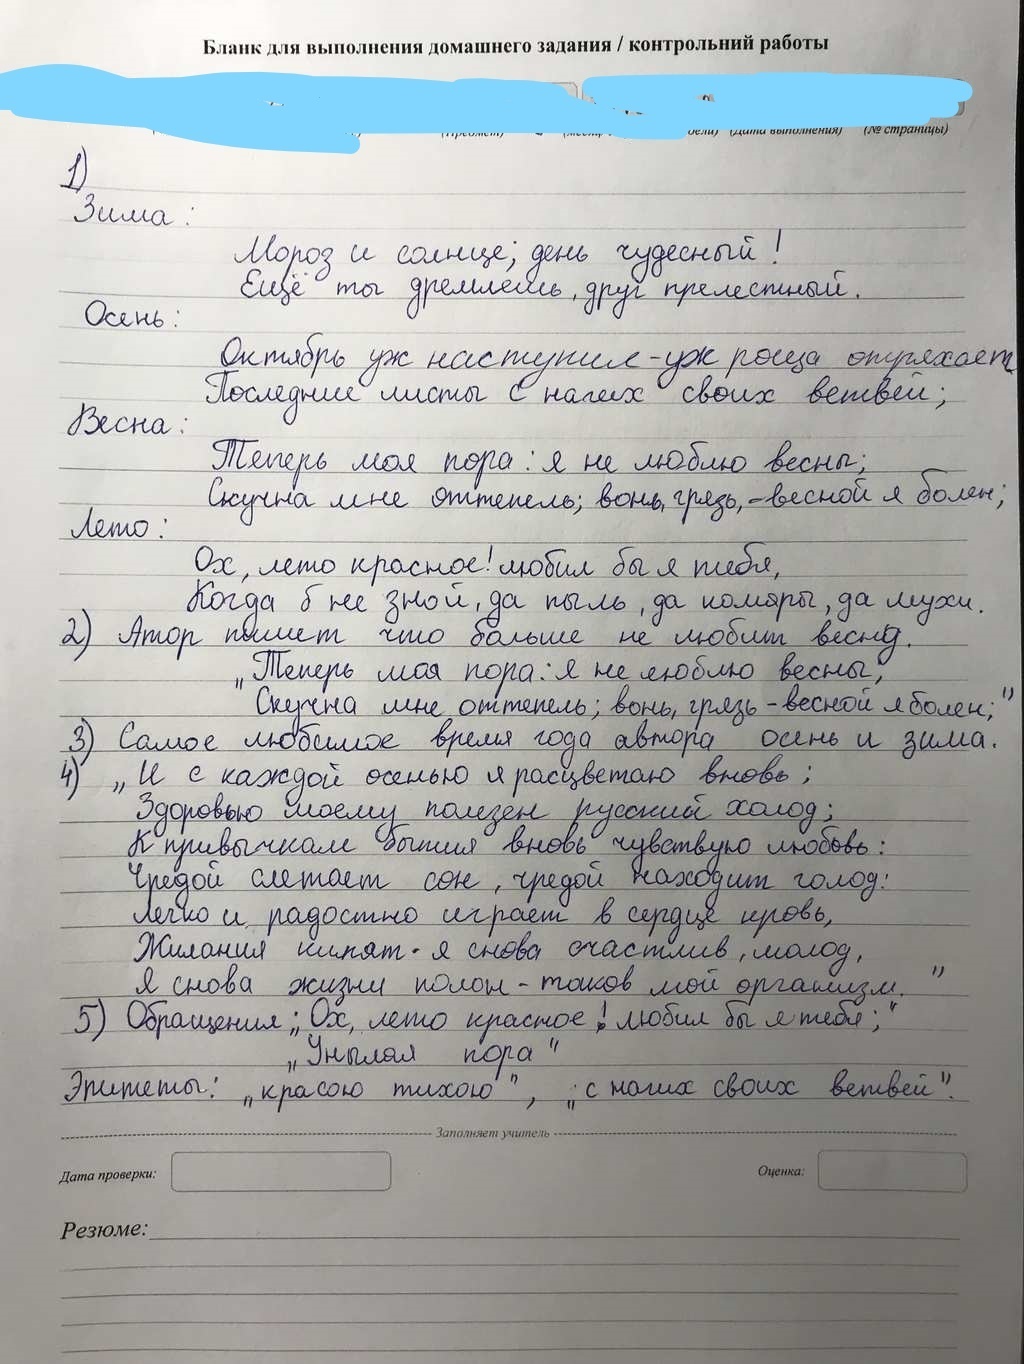 Бланк для выполнения домашнего задания / контрольний работы
(Дата выполнения) (№ страницы)
1)
Зима:
Мороз и солнце; день чудесный!
Ещё ты дремлешь, друг прелестный.
Осень:
Октябрь уж наступил - уж роща отряхает
Последние листы с нагих своих ветвей;
Весна:
Теперь моя пора: я не люблю весны;
Скучна мне оттепель; вонь, грязь, - весной я болен;
Лето:
Ох, лето красное! любил бы я тебя,
Когда б не зной, да пыль, да комары, да мухи.
2) Атор пишет что больше не любит весну.
„Теперь моя пора: я не люблю весны;
Скучна мне оттепель; вонь, грязь - весной я болен;"
3) Самое любимое время года автора осень и зима.
4) „И с каждой осенью я расцветаю вновь;
Здоровью моему полезен русский холод;
К привычкам бытия вновь чувствую любовь:
Чредой слетает сон, чредой находит голод:
Легко и радостно играет в сердце кровь,
Жилания кипят - я снова счастлив, молод,
Я снова жизни полон - таков мой организм. "
5) Обращения: „Ох, лето красное! любил бы я тебя;"
„Унылая пора"
Эпитеты: „красою тихою", „с нагих своих ветвей".
Заполняет учитель
Дата проверки:
Оценка:
Резюме: